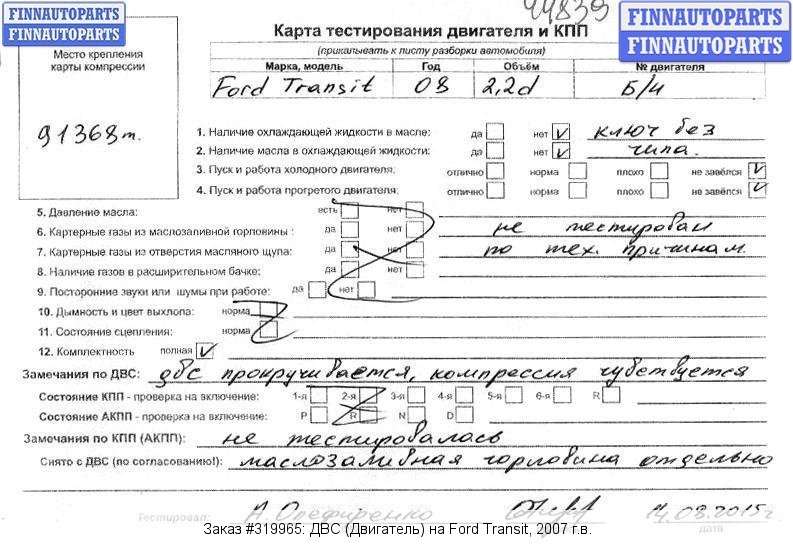 44839
FINNAUTOPARTS FINNAUTOPARTS
FINNAUTOPARTS FINNAUTOPARTS
Карта тестирования двигателя и КПП
(прикалывать к листу разборки автомобиля)
Место крепления
карты компрессии
Марка, модель Год Объём № двигателя
Ford Transit 08 2,2d Б/Н
91368т.
1. Наличие охлаждающей жидкости в масле: да нет V ключ без
2. Наличие масла в охлаждающей жидкости: да нет V чипа.
3. Пуск и работа холодного двигателя: отлично норма плохо не завёлся V
4. Пуск и работа прогретого двигателя: отлично норма плохо не завёлся V
5. Давление масла: есть нет
6. Картерные газы из маслозаливной горловины : да нет не тестирован
7. Картерные газы из отверстия масляного щупа: да нет по тех. причинам.
8. Наличие газов в расширительном бачке: да нет
9. Посторонние звуки или шумы при работе: да нет
10. Дымность и цвет выхлопа: норма
11. Состояние сцепления: норма
12. Комплектность полная V
Замечания по ДВС: двс прокручивается, компрессия чувствуется
Состояние КПП - проверка на включение: 1-я 2-я 3-я 4-я 5-я 6-я R
Состояние АКПП - проверка на включение: P R N D
Замечания по КПП (АКПП): не тестировалась
Снято с ДВС (по согласованию!): маслозаливная горловина отдельно
Тестировал: А. Олефиренко 14.08.2015г.
дата
Заказ #319965: ДВС (Двигатель) на Ford Transit, 2007 г.в.